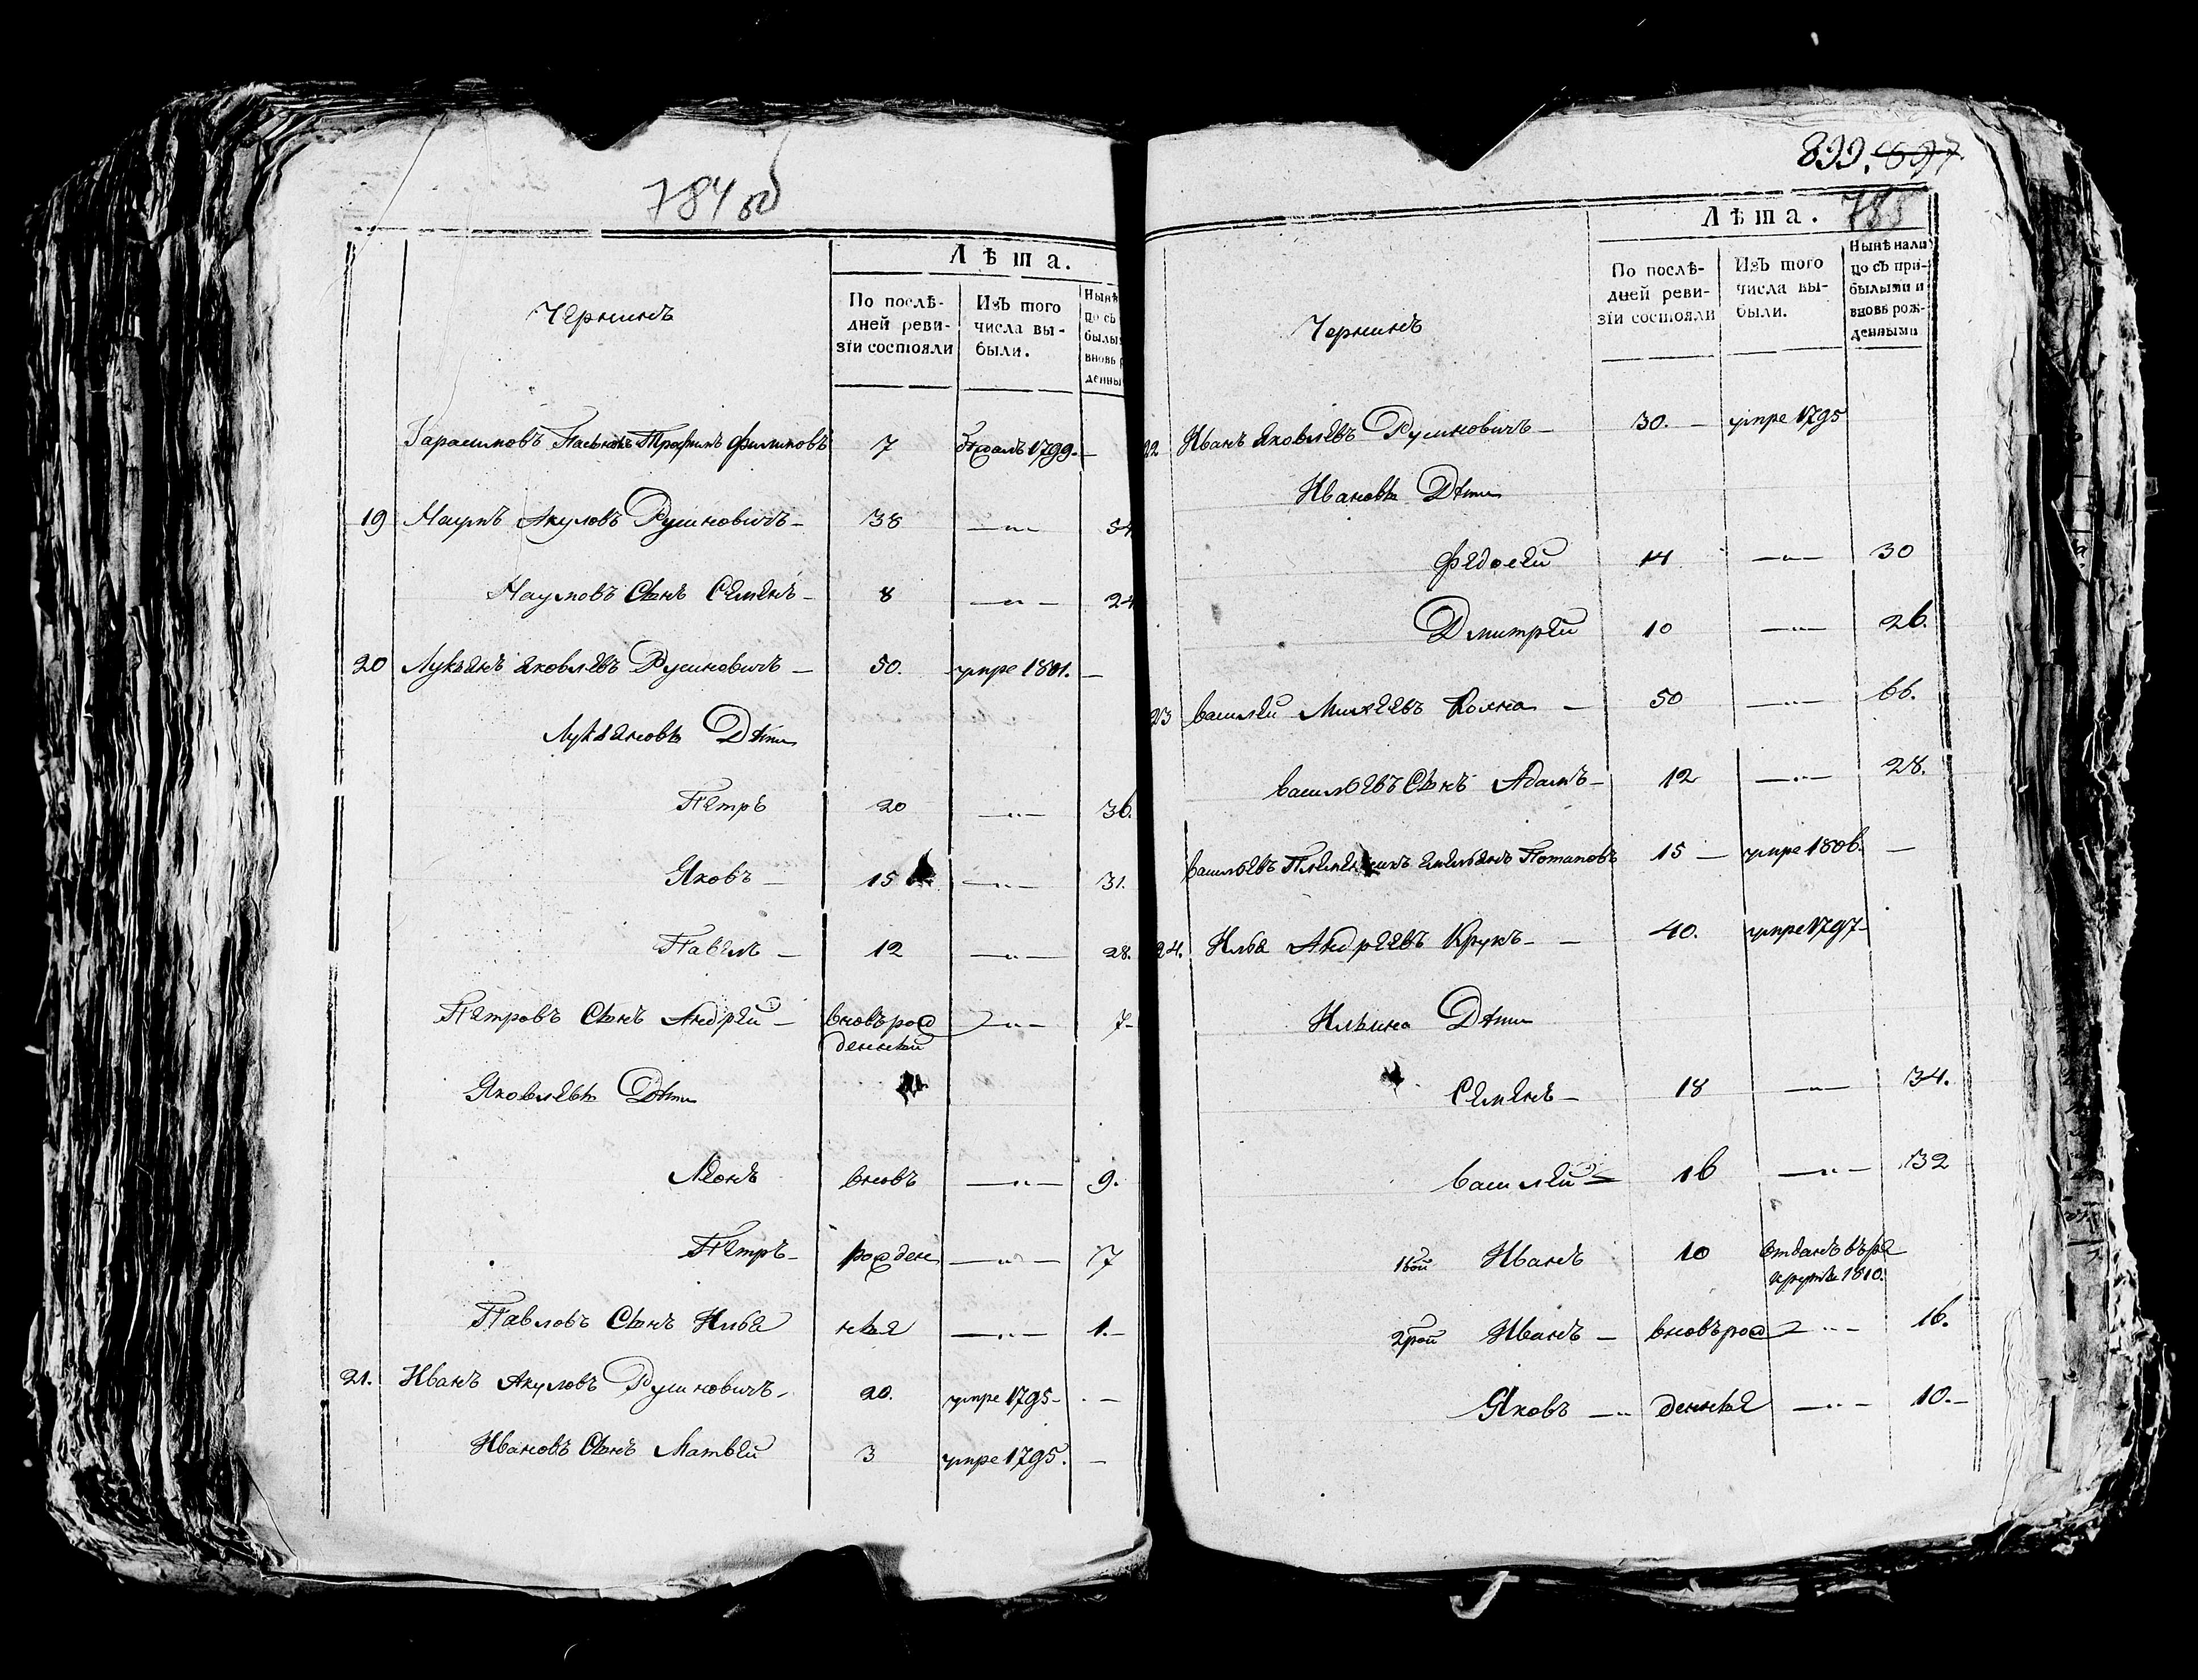 784 об
Лѣта.
Чернинъ
По послѣ-
дней реви-
зіи состояли
Изъ того
числа вы-
были.
Нынѣ
цо съ
былы
вновь р
денны
Гарасимовъ Трофимъ Филиповъ 7 1799. —
19 Наумъ Акуловъ Русиновичъ — 38 — „ — 54
Наумовъ Сынъ Семенъ — 8 — „ — 24
20 Лукьянъ Яковлевъ Русиновичъ — 50. умре 1801. —
Лукьяновы Дѣти
Петръ 20 — „ — 36.
Яковъ — 15 — „ — 31.
Павелъ — 12 — „ — 28.
Петровъ Сынъ Андрей — вновърож — „ — 7 –
денный
Яковлевы Дѣти
Леонъ вновъ — „ — 9.
Петръ — рожден — „ — 7
Павловъ Сынъ Илья ныя — „ — 1. –
21. Иванъ Акуловъ Русиновичъ. 20. умре 1795 – . —
Ивановъ Сынъ Матвей 3 умре 1795. —
899. 897
785
Лѣта.
Чернинъ
По послѣ-
дней реви-
зіи состояли
Изъ того
числа вы-
были.
Нынѣ нали
цо съ при-
былыми и
вновь рож-
денными
22 Иванъ Яковлевъ Русиновичъ — 30. — умре 1795
Ивановы Дѣти
Федосей 14 — „ — 30
Дмитрей 10 — „ — 26.
23 Василей Михеевъ — 50 — „ — 66.
Васильевъ Сынъ Адамъ — 12 — „ — 28.
Васильевъ Племянникъ Емельянъ Потаповъ 15 — умре 1806. —
24. Илья Андреевъ Крукъ — — 40. умре 1797 –
Ильины Дѣти
Семенъ — 18 — „ — 34.
Василей — 16 — „ — 32
1вой Иванъ 10 отданъ въ ре
круты 1810.
2рой Иванъ — вновърож — „ — 16.
Яковъ — „ денныя — „ — 10. –